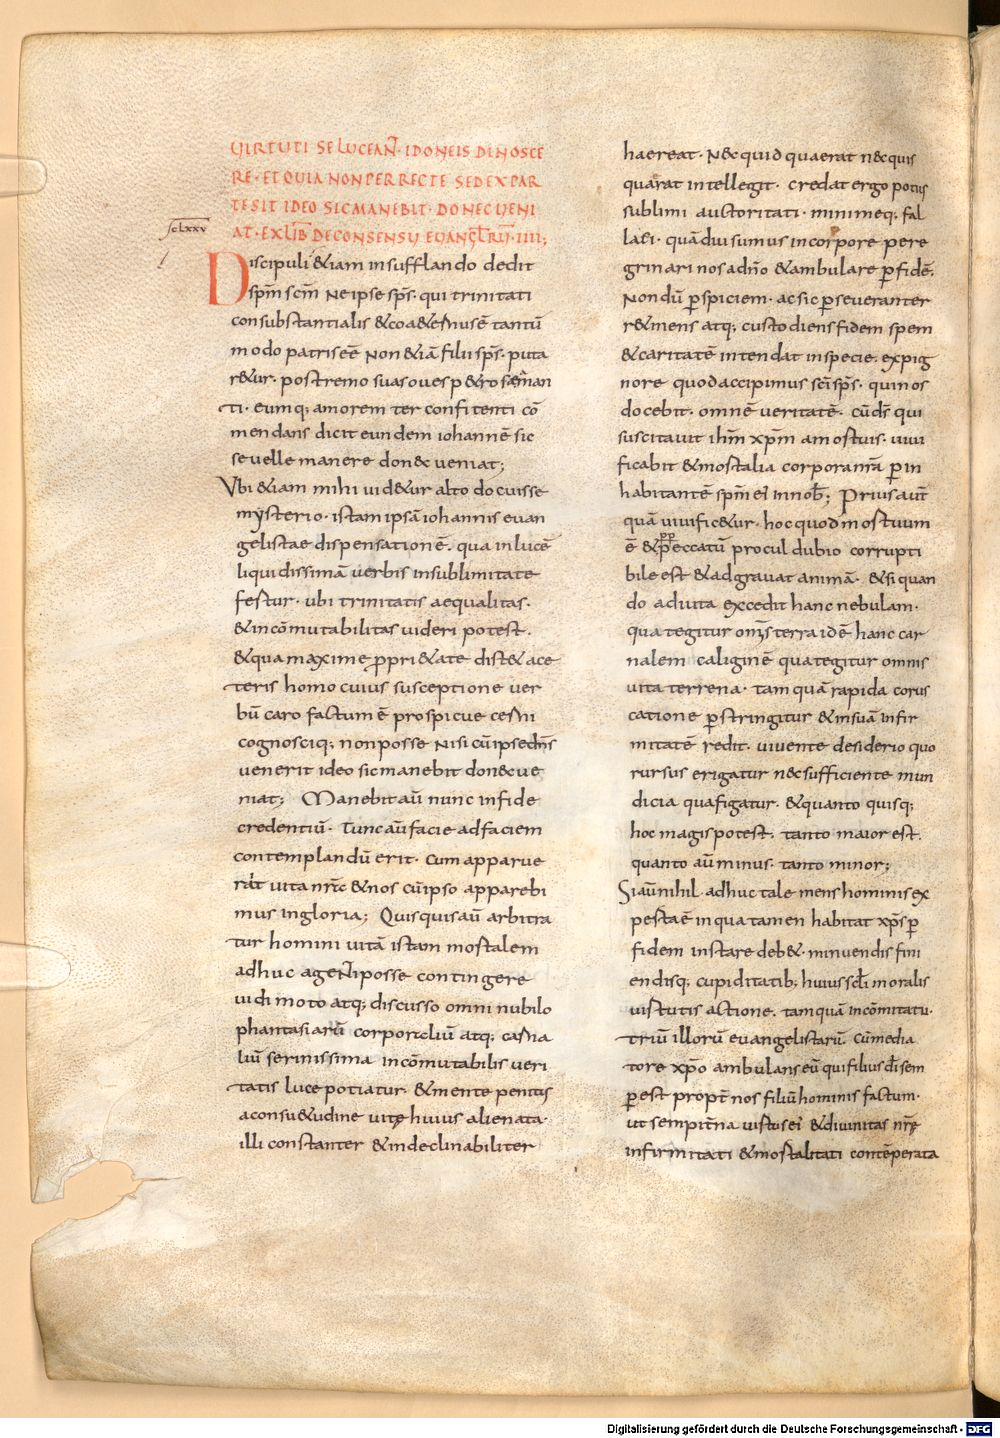 UIRTUTI SE LUCEANT· IDONEIS DINOSCE
RE· ET QUIA NON PERRECTE SED EX PAR
TE SIT IDEO SIC MANEBIT· DONEC UENI
AT· EX LIB̅ DE CONSENSU EUANGL̅RU̅· IIII;
Discipuli &iam insufflando dedit
sp̅m sc̅m Ne ipse sp̅s· qui trinitati
consubstantialis & coa&ernus e̅ tantu̅
modo patris e̅e Non &ia̅ filii sp̅s· puta
r&ur· postremo suas oues p&ro
ti· eumq; amorem ter confitenti co̅
mendans dicit eundem iohanne̅ sic
se uelle manere don&c ueniat;
Vbi &iam mihi uid&ur alto docuisse
mysterio· istam ipsa̅ iohannis euan
gelistae dispensatione̅· qua in luce̅
liquidissima̅ uerbis in sublimitate
fertur· ubi trinitatis aequalitas·
& inco̅mutabilitas uideri potest·
& qua maxime ppri&ate dist& a ce
teris homo cuius susceptione uer
bu̅ caro factum e̅ prospicue cerni
cognosciq; non posse Nisi cu̅ ipse dn̅s
uenerit ideo sic manebit don&c ue
niat; Manebit au̅ nunc in fide
credentiu̅· Tunc au̅ facie ad faciem
contemplandu̅ erit· cum apparue
rit uita nr̅a & nos cu̅ ipso apparebi
mus in gloria; Quisquis au̅ arbitra
tur homini uita̅ istam mortalem
adhuc agenti posse contingere
ut dimoto atq; discusso omni nubilo
phantasiaru̅ corporeliu̅ atq; carna
liu̅ serinissima inco̅mutabilis ueri
tatis luce potiatur· & mente penitus
a consu&udine uitę huius alienata·
illi constanter & indeclinabiliter
sc lxxv
haereat· Nec quid quaerat n&c quis
quærat intellegit· credat ergo potius
sublimi auctoritati· minimeq; fal
laci· qua̅diu sumus in corpore pere
grinari nos a dn̅o & ambulare p̱ fide̅·
Nondu̅ p̱ spiciem· ac sic p̱seueranter
r&inens atq; custodiens fidem spem
& caritate̅ intendat in specie· ex pig
nore quod accipimus sc̅i sp̅s· qui nos
docebit· omne̅ ueritate̅· cu̅ ds̅ qui
suscitauit ih̅m xp̅m a mortuis· uiui
ficabit & mortalia corpora nr̅a p̱ in
habitante̅ sp̅m ei in nob̅; Prius aut̅
qua̅ uiuific&ur· hoc quod mortuum
e̅ & ppeccatu̅ procul dubio corrupti
bile est & adgrauat anima̅· & si quan
do adiuta excedit hanc nebulam·
qua tegitur om̅s terra ide̅ hanc car
nalem caligine̅ qua tegitur omnis
uita terrena· tamqua̅ rapida corus
catione p̱stringitur & in sua̅ infir
mitate̅ redit· uiuente desiderio quo
rursus erigatur n&c sufficiente mun
dicia qua figatur· & quanto quisq;
hoc magis potest· tanto maior est·
quanto au̅ minus· tanto minor;
Si au̅ nihil· adhuc tale mens hominis ex
perta e̅ in qua tamen habitat xp̅s p̱
fidem instare deb&· minuendis fini
endisq; cupiditatib; huius sc̅li moralis
uirtutis actione· tamqua̅ inco̅mitatu·
triu̅ illoru̅ euangelistaru̅· cu̅ media
tore xp̅o ambulans eu̅ qui filius di̅ sem
p̱ est propt̅ nos filiu̅ hominis factum·
ut sempit̅na uirtus ei & diuinitas nr̅ę
infirmitati & mortalitati conte̅perata
Digitalisierung gefördert durch die Deutsche Forschungsgemeinschaft - DFG